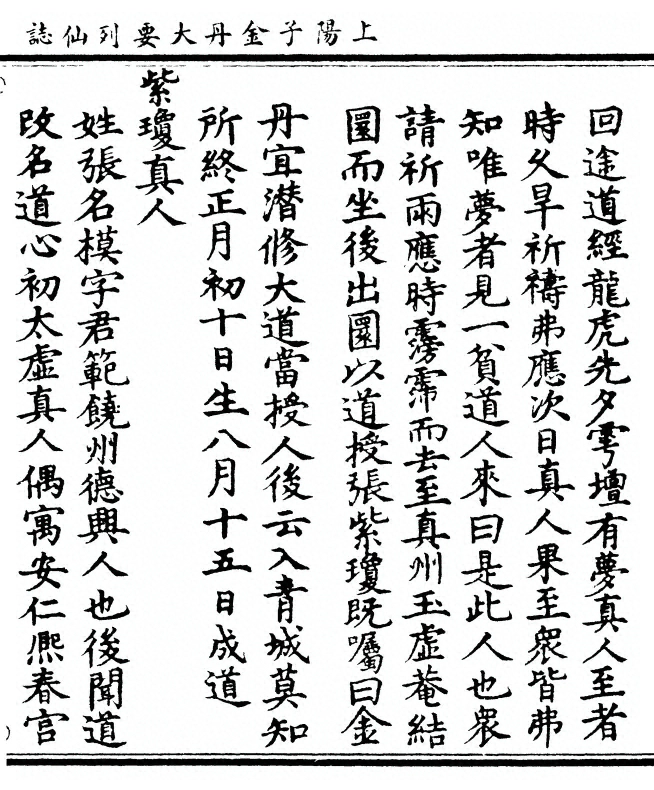 上陽子金丹大要列仙誌
回途道經龍虎先夕雩壇有夢真人至者
時久旱祈禱弗應次日真人果至衆皆弗
知唯夢者見一貧道人來曰是此人也衆
請祈雨應時霶霈而去至真州玉虛菴結
圜而坐後出圜以道授張紫瓊既囑曰金
丹宜潛修大道當授人後云入青城莫知
所終正月初十日生八月十五日成道
紫瓊真人
姓張名模字君範饒州德興人也後聞道
改名道心初太虛真人偶寓安仁熈春宫